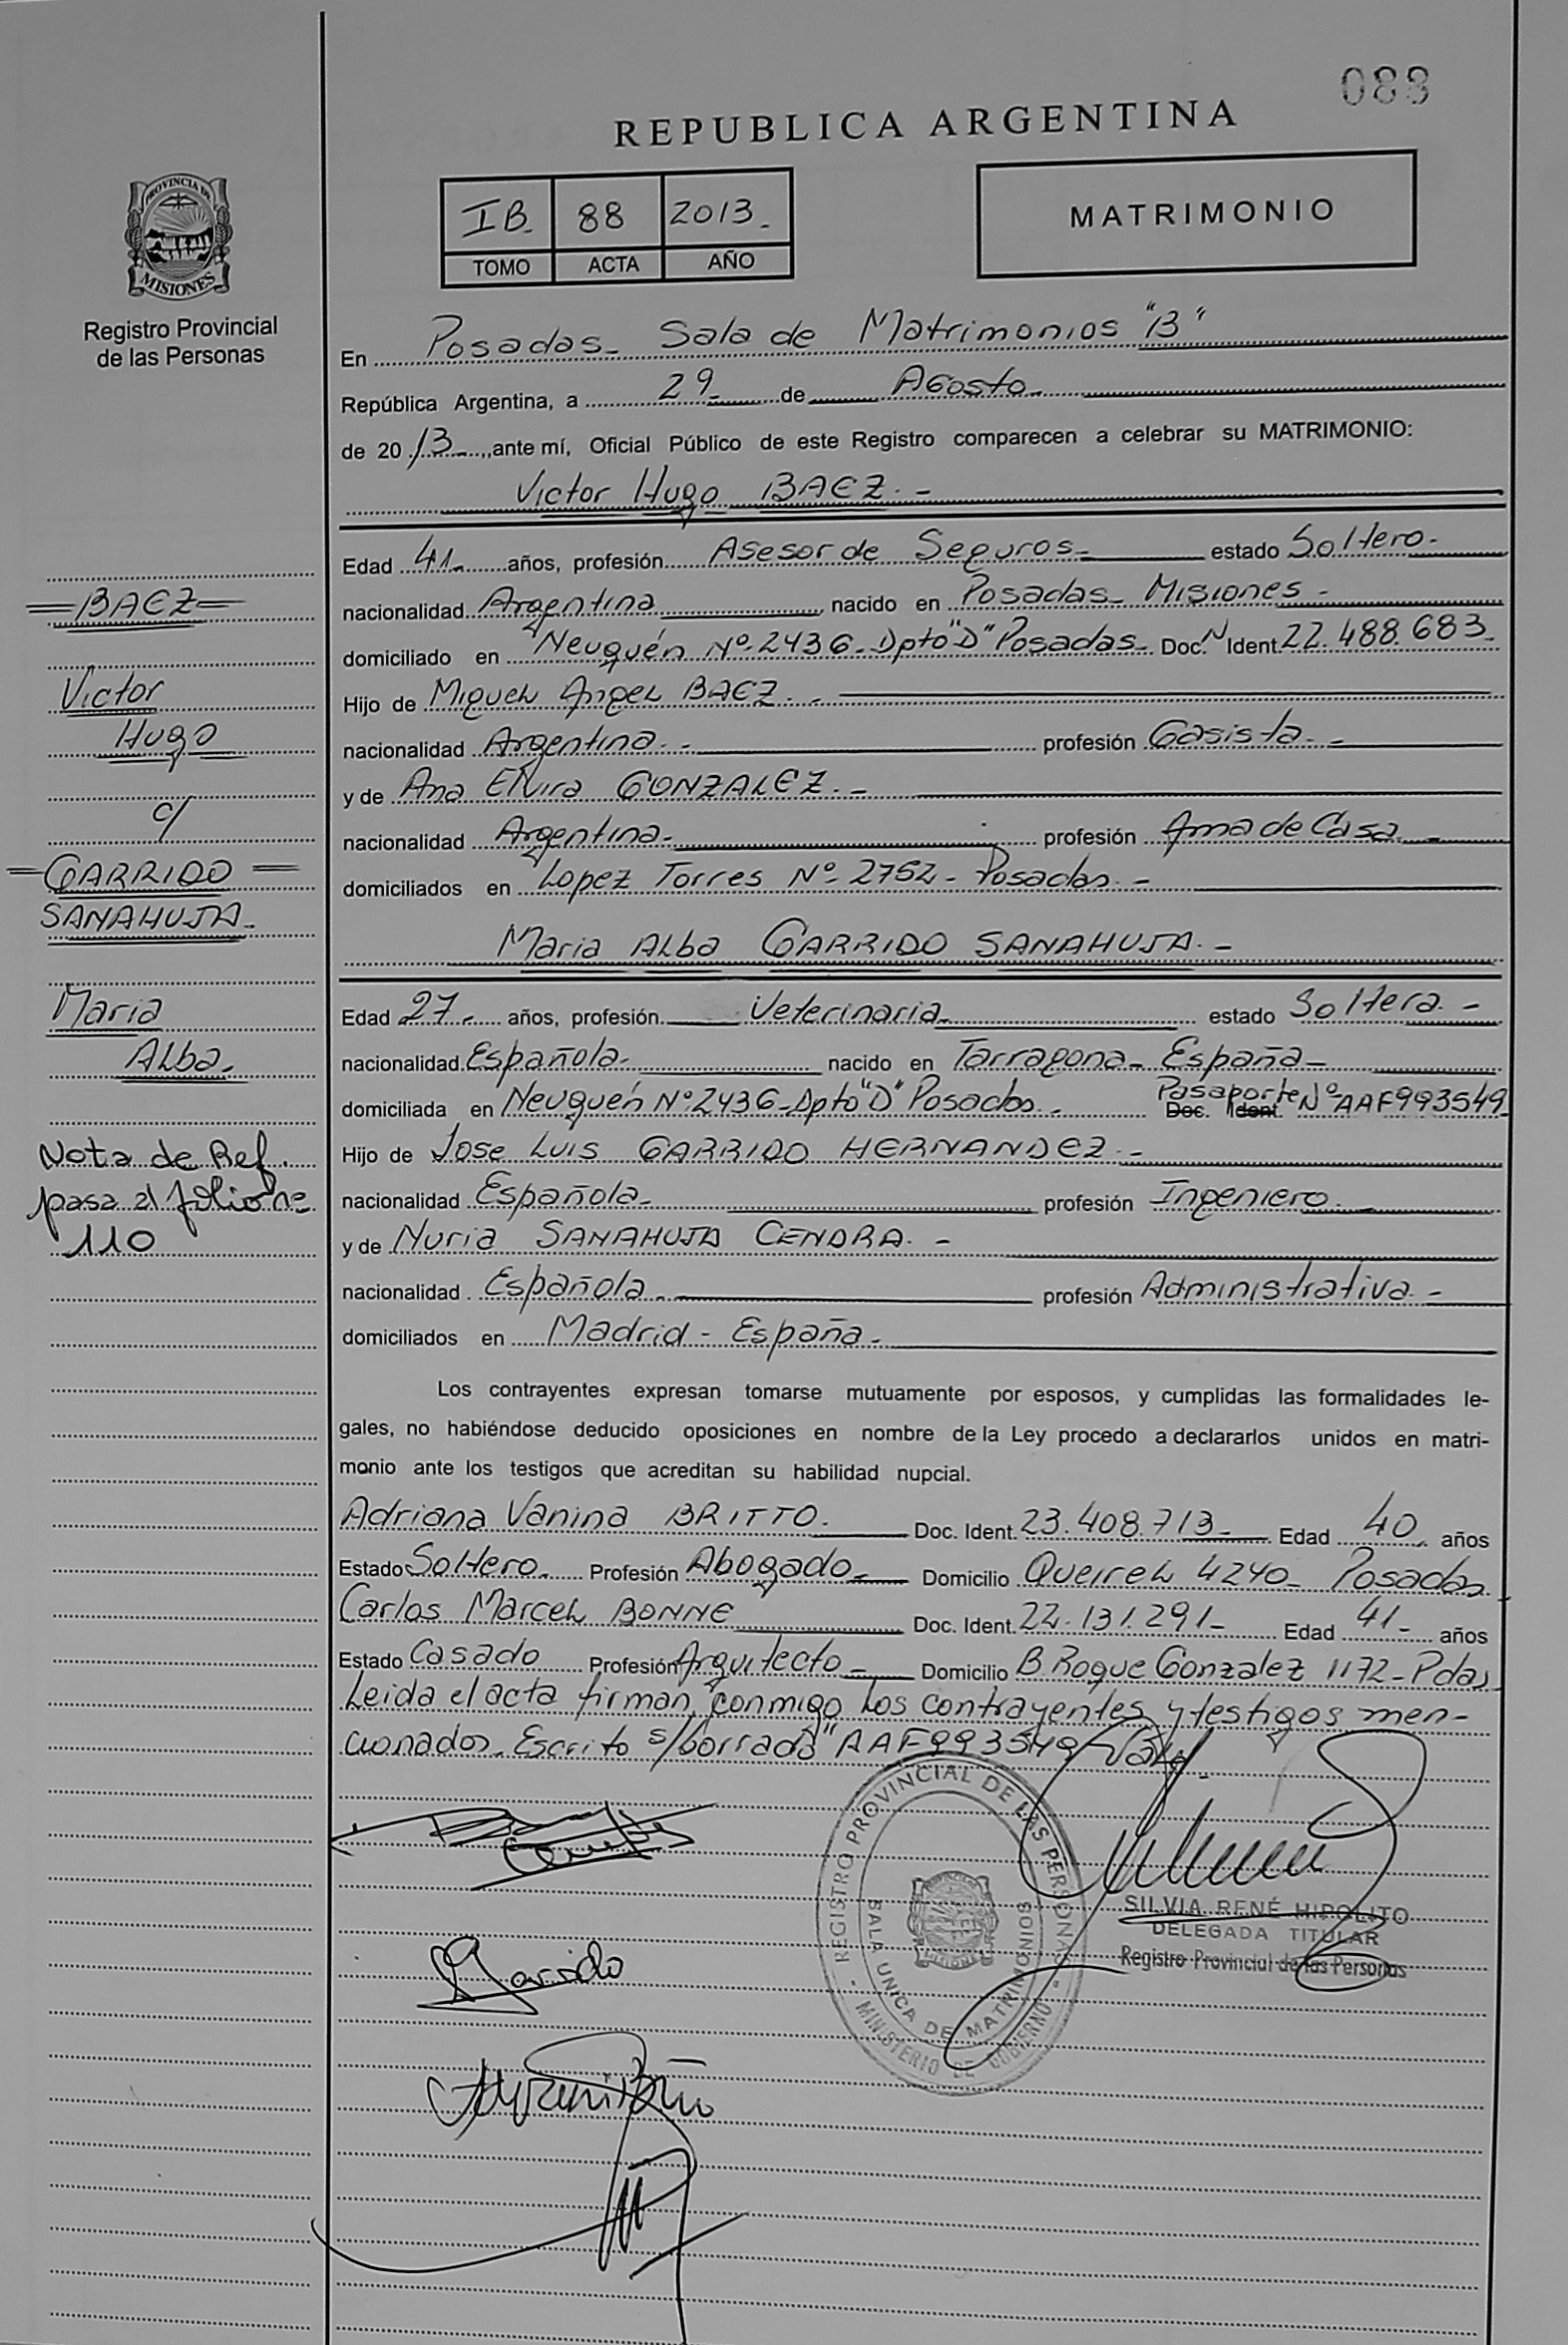 088
REPUBLICA ARGENTINA
PROVINCIA DE
MISIONES
Registro Provincial
de las Personas
IB. 88 2013.
TOMO ACTA AÑO
MATRIMONIO
En Posadas- Sala de Matrimonios "B"
República Argentina, a 29- de Agosto-
de 2013-, ante mí, Oficial Público de este Registro comparecen a celebrar su MATRIMONIO:
Victor Hugo BAEZ.-
Edad 41- años, profesión Asesor de Seguros- estado Soltero-
nacionalidad Argentina nacido en Posadas- Misiones-
domiciliado en Neuquén Nº-2436-Dpto"D" Posadas- Doc. N Ident. 22.488.683-
Hijo de Miguel Angel BAEZ.-
nacionalidad Argentina.- profesión Gasista.-
y de Ana Elvira GONZALEZ.-
nacionalidad Argentina- profesión Ama de Casa.-
domiciliados en Lopez Torres Nº-2752-Posadas.-
Maria Alba GARRIDO SANAHUJA.-
Edad 27- años, profesión Veterinaria- estado Soltera.-
nacionalidad Española- nacido en Tarragona- España-
domiciliada en Neuquén Nº2436-Dpto"D" Posadas- Doc. Ident. Pasaporte Nº AAF993549
Hijo de Jose Luis GARRIDO HERNANDEZ.-
nacionalidad Española- profesión Ingeniero-
y de Nuria SANAHUJA CENDRA.-
nacionalidad Española- profesión Administrativa.-
domiciliados en Madrid- España-
Los contrayentes expresan tomarse mutuamente por esposos, y cumplidas las formalidades le-
gales, no habiéndose deducido oposiciones en nombre de la Ley procedo a declararlos unidos en matri-
monio ante los testigos que acreditan su habilidad nupcial.
Adriana Vanina BRITTO. Doc. Ident. 23.408.713- Edad 40 años
Estado Soltero. Profesión Abogado- Domicilio Queirel 4240- Posadas
Carlos Marcel BONNE Doc. Ident. 22.131.291- Edad 41- años
Estado Casado Profesión Arquitecto- Domicilio B. Roque Gonzalez 1172-Pdas
Leida el acta firman conmigo los contrayentes y testigos men-
cionados. Escrito s/borrado "AAF993549" Vale-
=BAEZ=
Victor
Hugo
c/
=GARRIDO=
SANAHUJA-
Maria
Alba-
Nota de Ref.
pasa al folio nº
110
REGISTRO PROVINCIAL DE LAS PERSONAS
SALA UNICA DE MATRIMONIOS
MINISTERIO DE GOBIERNO
SILVIA RENÉ HIPOLITO
DELEGADA TITULAR
Registro Provincial de las Personas
Garrido